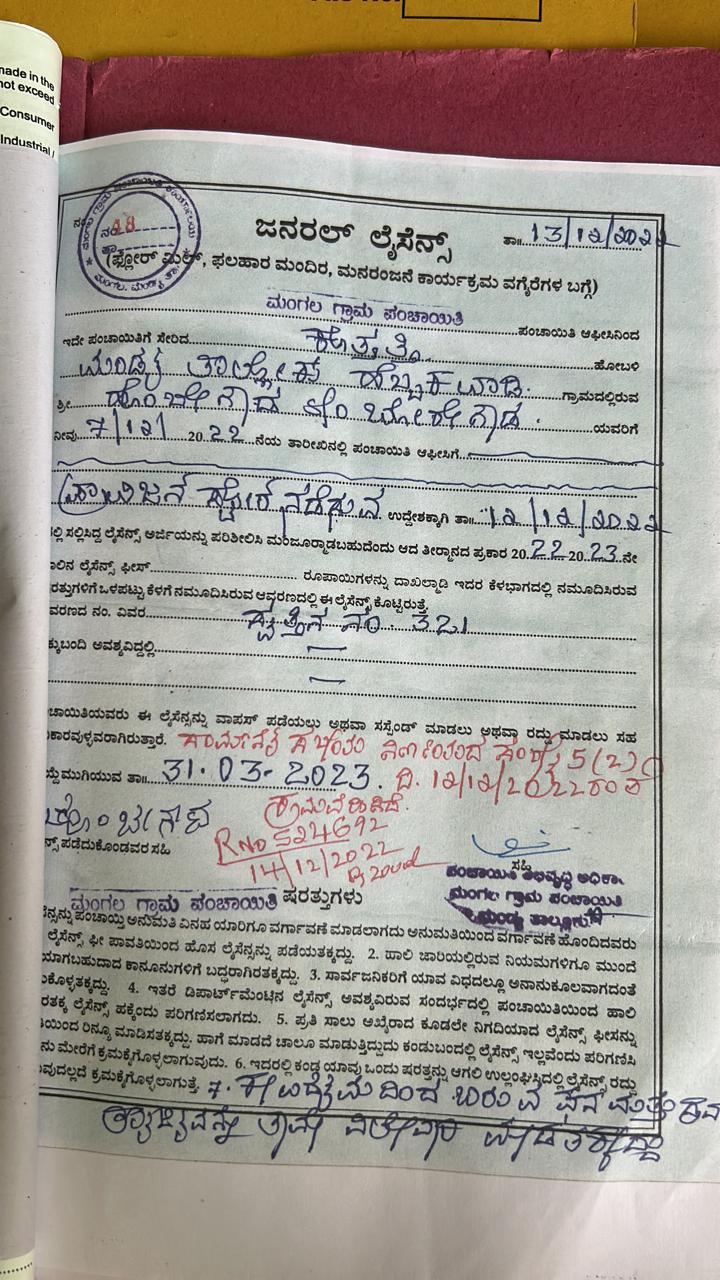 made in the
not exceed
Consumer
Industrial /
ನಂ 48
ಜನರಲ್ ಲೈಸೆನ್ಸ್
ತಾ॥ 13/12/2022
(ಫ್ಲೋರ್ ಮಿಲ್, ಫಲಹಾರ ಮಂದಿರ, ಮನರಂಜನೆ ಕಾರ್ಯಕ್ರಮ ವಗೈರೆಗಳ ಬಗ್ಗೆ)
ಮಂಗಲ ಗ್ರಾಮ ಪಂಚಾಯಿತಿ ಪಂಚಾಯಿತಿ ಆಫೀಸಿನಿಂದ
ಇದೇ ಪಂಚಾಯಿತಿಗೆ ಸೇರಿದ ಹೋಬಳಿ
ಮಂಡ್ಯ ತಾಲ್ಲೋಕು ಗ್ರಾಮದಲ್ಲಿರುವ
ಶ್ರೀ ಯವರಿಗೆ
ನೀವು 7/12/ 2022 ನೆಯ ತಾರೀಖಿನಲ್ಲಿ ಪಂಚಾಯಿತಿ ಆಫೀಸಿಗೆ
ಪ್ರಾವಿಜನ್ ಸ್ಟೋರ್ ನಡೆಸುವ ಉದ್ದೇಶಕ್ಕಾಗಿ ತಾ॥ 12/12/2022
ಲ್ಲಿ ಸಲ್ಲಿಸಿದ್ದ ಲೈಸೆನ್ಸ್ ಅರ್ಜಿಯನ್ನು ಪರಿಶೀಲಿಸಿ ಮಂಜೂರ್ಮಾಡಬಹುದೆಂದು ಆದ ತೀರ್ಮಾನದ ಪ್ರಕಾರ 2022 2023 ನೇ
ಾಲಿನ ಲೈಸೆನ್ಸ್ ಫೀಸ್ ರೂಪಾಯಿಗಳನ್ನು ದಾಖಲ್ಮಾಡಿ ಇದರ ಕೆಳಭಾಗದಲ್ಲಿ ನಮೂದಿಸಿರುವ
ರತ್ತುಗಳಿಗೆ ಒಳಪಟ್ಟು ಕೆಳಗೆ ನಮೂದಿಸಿರುವ ಆವರಣದಲ್ಲಿ ಈ ಲೈಸೆನ್ಸ್ ಕೊಟ್ಟಿರುತ್ತೆ.
ವರಣದ ನಂ. ವಿವರ ಸ್ವತ್ತಿನ ನಂ 321
ಕ್ಕುಬಂದಿ ಅವಶ್ಯವಿದ್ದಲ್ಲಿ
ಚಾಯಿತಿಯವರು ಈ ಲೈಸೆನ್ಸನ್ನು ವಾಪಸ್ ಪಡೆಯಲು ಅಥವಾ ಸಸ್ಪೆಂಡ್ ಮಾಡಲು ಅಥವಾ ರದ್ದು ಮಾಡಲು ಸಹ
ಕಾರವುಳ್ಳವರಾಗಿರುತ್ತಾರೆ. ಸಾಮಾನ್ಯ ಸಭೆಯ 5(2)
ಯ್ದೆ ಮುಗಿಯುವ ತಾ॥ 31-03-2023. ದಿ. 12/12/2022
RNo 524692
14/12/2022
ನ್ಸ್ ಪಡೆದುಕೊಂಡವರ ಸಹಿ
ಸಹಿ
ಪಂಚಾಯಿತಿ ಅಭಿವೃದ್ಧಿ ಅಧಿಕಾರಿ
ಮಂಗಲ ಗ್ರಾಮ ಪಂಚಾಯಿತಿ
ಮಂಡ್ಯ ತಾಲ್ಲೂಕು
ಮಂಗಲ ಗ್ರಾಮ ಪಂಚಾಯಿತಿ ಷರತ್ತುಗಳು
ನ್ಸನ್ನು ಪಂಚಾಯ್ತಿ ಅನುಮತಿ ವಿನಹ ಯಾರಿಗೂ ವರ್ಗಾವಣೆ ಮಾಡಲಾಗದು ಅನುಮತಿಯಿಂದ ವರ್ಗಾವಣೆ ಹೊಂದಿದವರು
ಲೈಸೆನ್ಸ್ ಫೀ ಪಾವತಿಯಿಂದ ಹೊಸ ಲೈಸೆನ್ಸನ್ನು ಪಡೆಯತಕ್ಕದ್ದು. 2. ಹಾಲಿ ಜಾರಿಯಲ್ಲಿರುವ ನಿಯಮಗಳಿಗೂ ಮುಂದೆ
ಯಾಗಬಹುದಾದ ಕಾನೂನುಗಳಿಗೆ ಬದ್ಧರಾಗಿರತಕ್ಕದ್ದು. 3. ಸಾರ್ವಜನಿಕರಿಗೆ ಯಾವ ವಿಧದಲ್ಲೂ ಅನಾನುಕೂಲವಾಗದಂತೆ
ಕೊಳ್ಳತಕ್ಕದ್ದು. 4. ಇತರೆ ಡಿಪಾರ್ಟ್‌ಮೆಂಟಿನ ಲೈಸೆನ್ಸ್ ಅವಶ್ಯವಿರುವ ಸಂದರ್ಭದಲ್ಲಿ ಪಂಚಾಯಿತಿಯಿಂದ ಹಾಲಿ
ರತಕ್ಕ ಲೈಸೆನ್ಸ್ ಹಕ್ಕೆಂದು ಪರಿಗಣಿಸಲಾಗದು. 5. ಪ್ರತಿ ಸಾಲು ಅಖೈರಾದ ಕೂಡಲೇ ನಿಗದಿಯಾದ ಲೈಸೆನ್ಸ್ ಫೀಸನ್ನು
ಯಿಂದ ರಿನ್ಯೂ ಮಾಡಿಸತಕ್ಕದ್ದು. ಹಾಗೆ ಮಾಡದೆ ಚಾಲೂ ಮಾಡುತ್ತಿದ್ದುದು ಕಂಡುಬಂದಲ್ಲಿ ಲೈಸೆನ್ಸ್ ಇಲ್ಲವೆಂದು ಪರಿಗಣಿಸಿ
ನು ಮೇರೆಗೆ ಕ್ರಮಕೈಗೊಳ್ಳಲಾಗುವುದು. 6. ಇದರಲ್ಲಿ ಕಂಡ ಯಾವ ಒಂದು ಷರತ್ತನ್ನು ಆಗಲಿ ಉಲ್ಲಂಘಿಸಿದ್ದಲ್ಲಿ ಲೈಸೆನ್ಸ್ ರದ್ದು
ವುದಲ್ಲದೆ ಕ್ರಮಕೈಗೊಳ್ಳಲಾಗುತ್ತೆ. 7. ಈ ಉದ್ದಿಮೆಯಿಂದ ಬರುವ ಘನ ಮತ್ತು ದ್ರವ
ತ್ಯಾಜ್ಯವನ್ನು ತಾವೇ ವಿಲೇವಾರಿ ಮಾಡತಕ್ಕದ್ದು